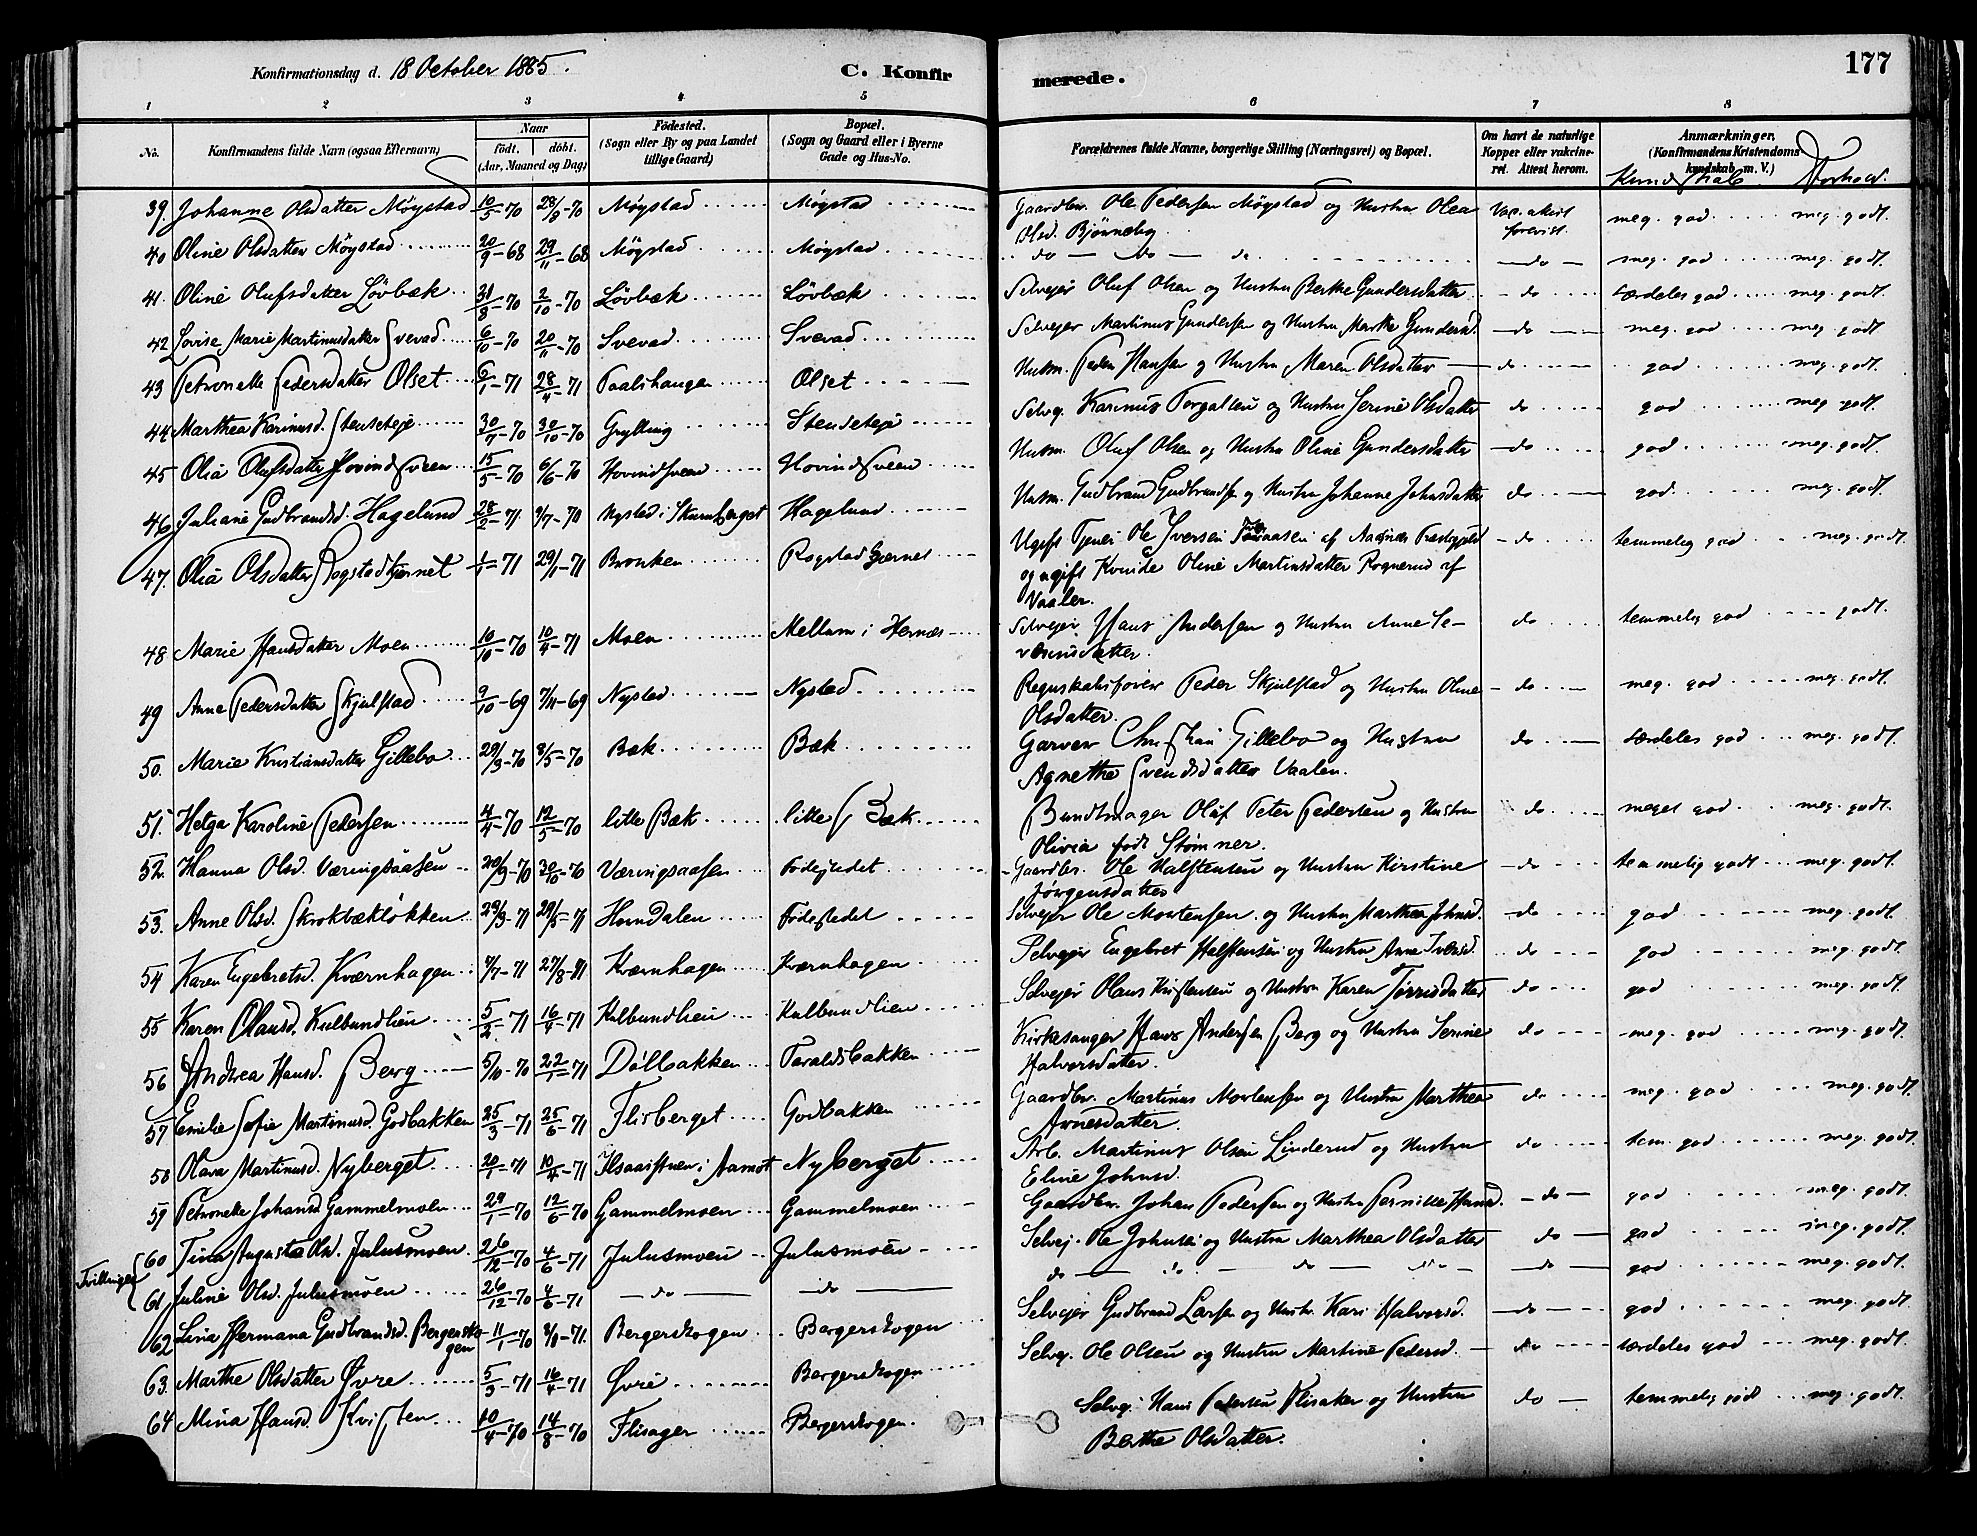 Konfirmationsdag d. 18 October 1885. C. Konfir merede. 177
1 2 3 4 5 6 7 8
No. Konfirmandens fulde Navn (ogsaa Efternavn) Naar født. døbt. (Aar, Maaned og Dag) Fødested. (Sogn eller By og paa Landet tillige Gaard) Bopæl. (Sogn og Gaard eller i Byerne Gade og Hus-No. Forældrenes fulde Navne, borgerlige Stilling (Næringsvei) og Bopæl. Om havt de naturlige Kopper eller vakcineret. Attest herom. Anmærkninger. (Konfirmandens Kristendomskundskab m. V.)
Kundskab. Forhold.
39. Johanne Olsdatter Møystad 10/5-70 28/8-70 Møystad Møystad Gaardbr. Ole Pedersen Møystad og Hustru Olea Vac. attest meg. god meg. godt.
Olsd. Bjørneby forevist.
40 Oline Olsdatter Møystad 20/9-68 29/11-68 Møystad Møystad do do do do meg. god meg. godt.
41. Oline Olufsdatter Løvbæk 31/8-70 2/10-70 Løvbæk Løvbæk Selveier Oluf Olsen og Hustru Berthe Gundersdatter do særdeles god meg. godt.
42 Lovise Marie Martinusdatter Svevad 6/10-70 20/11-70 Svevad Svevad Selveier Martinus Gundersen og Hustru Marthe Gundersd. do meg. god meg. godt
43 Petronelle Pedersdatter Olset 6/1-71 28/4-71 Paalshaugen Olset Husm. Peder Hansen og Hustru Maren Olsdatter do god meg. godt
44 Marthea Karinusd. Stenseteje 30/7-70 30/10-70 Grylling Stenseteje Selvej. Karinus Torgalsen og Hustru Serine Olsdatter do god meg. godt
45 Olia Olufsdatter Hovindsveen 15/5-70 6/6-70 Hovindsveen Hovindsveen Husm. Oluf Olsen og Hustru Oline Gundersdatter do god meg. godt
46 Juliane Gudbrandsd. Hagelund 28/2-71 9/7-71 Nysted i Hagelund Husm. Gudbrand Gudbrandsen og Hustru Johanne Johnsdatter do god meg. godt.
47. Olia Olsdatter Rogstadtjernet 1/1-71 29/1-71 Bronken Rogstadtjernet Ugift Tjener Ole Iversen af Aasnæs Præstegjeld do temmelig god meg. godt
og ugift Kvinde Oline Martinsdatter Rognerud af
Vaaler.
48 Marie Hansdatter Moen 10/10-70 10/4-71 Moen Mellum i Hernæs Selveier Hans Andersen og Hustru Anne Se- do temmelig god godt.
verinsdatter.
49 Anne Pedersdatter Skjulstad 9/10-69 7/11-69 Nysted Nysted Regnskabsfører Peder Skjulstad og Hustru Oline do meg. god meg. godt.
Olsdatter.
50. Marie Kristiansdatter Gillebo 29/3-70 8/5-70 Bæk Bæk Garver Christian Gillebo og Hustru do særdeles god meg. godt
Agnethe Svendsdatter Vaalen.
51. Helga Karoline Pedersen 4/4-70 12/5-70 lille Bæk lille Bæk Bundtmager Oluf Peter Pedersen og Hustru do meget god meg. godt.
Olivia født Stømner.
52. Hanna Olsd. Væringsaasen 20/9-70 30/10-70 Væringsaasen Fødestedet Gaardbr. Ole Halstensen og Hustru Kirstine do temmelig godt meg. godt.
Jørgensdatter
53. Anne Olsd. Skrokbækløkken 29/3-71 29/5-71 Horndalen Fødestedet Selveier Ole Mortensen og Hustru Marthea Johnsd. do god meg. godt.
54 Karen Engebretsd. Kværnhagen 7/7-71 27/8-71 Kværnhagen Kværnhagen Selveier Engebret Halstensen og Hustru Anne do god meg. godt.
55 Karen Olausd. Kulbundlien 5/2-71 16/4-71 Kulbundlien Kulbundlien Selveier Olaus Kristensen og Hustru Karen Tørrisdatter do god meg. godt.
56 Andrea Hansd. Berg 5/10-70 22/1-71 Dølbakken Taraldsbakken Kirkesanger Hans Andersen Berg og Hustru Serine do meg. god meg. godt
Halvorsdatter.
57 Emilie Sofie Martinusd. Godbakken 25/3-71 25/6-71 Flisberget Godbakken Gaardbr. Martinus Mortensen og Hustru Marthea do meg. god meg. godt.
Arnesdatter
58 Olava Martinusd. Nyberget 20/1-71 10/4-71 i Aamot Nyberget Arb. Martinus Olsen Linderud og Hustru do tem. god meg. godt
Eline Johnsd.
59 Petronelle Johansd Gammelmoen 29/1-70 12/6-70 Gammelmoen Gammelmoen Gaardbr. Johan Pedersen og Hustru Pernille Hansd. do god meg. godt.
Tvillinger
60 Tina Augusta Olsd. Julusmoen 26/12-70 4/6-71 Julusmoen Julusmoen Selvej. Ole Johnsen og Hustru Marthea Olsdatter do god meg. godt.
61 Juline Olsd. Julusmoen 26/12-70 4/6-71 do do do do do do do god meg. godt.
62 Lina Hermana Gudbrandsd. Bergersko- 11/1-70 Bergerskogen Bergerskogen Selveier Gudbrand Larsen og Hustr. Kari Halvorsd. do god meg. godt.
gen
63. Marthe Olsdatter Øvre 5/3-71 16/4-71 Øvre Bergerskogen Selvej. Ole Olsen og Hustru Martine Pedersd. do særdeles god meg. godt.
64 Mina Hansd. Kvisten 10/4-70 14/8-70 Flisager Bergerskogen. Selvej. Hans Pedersen Flisaker og Hustru do temmelig godt meg. godt.
Berthe Olsdatter.